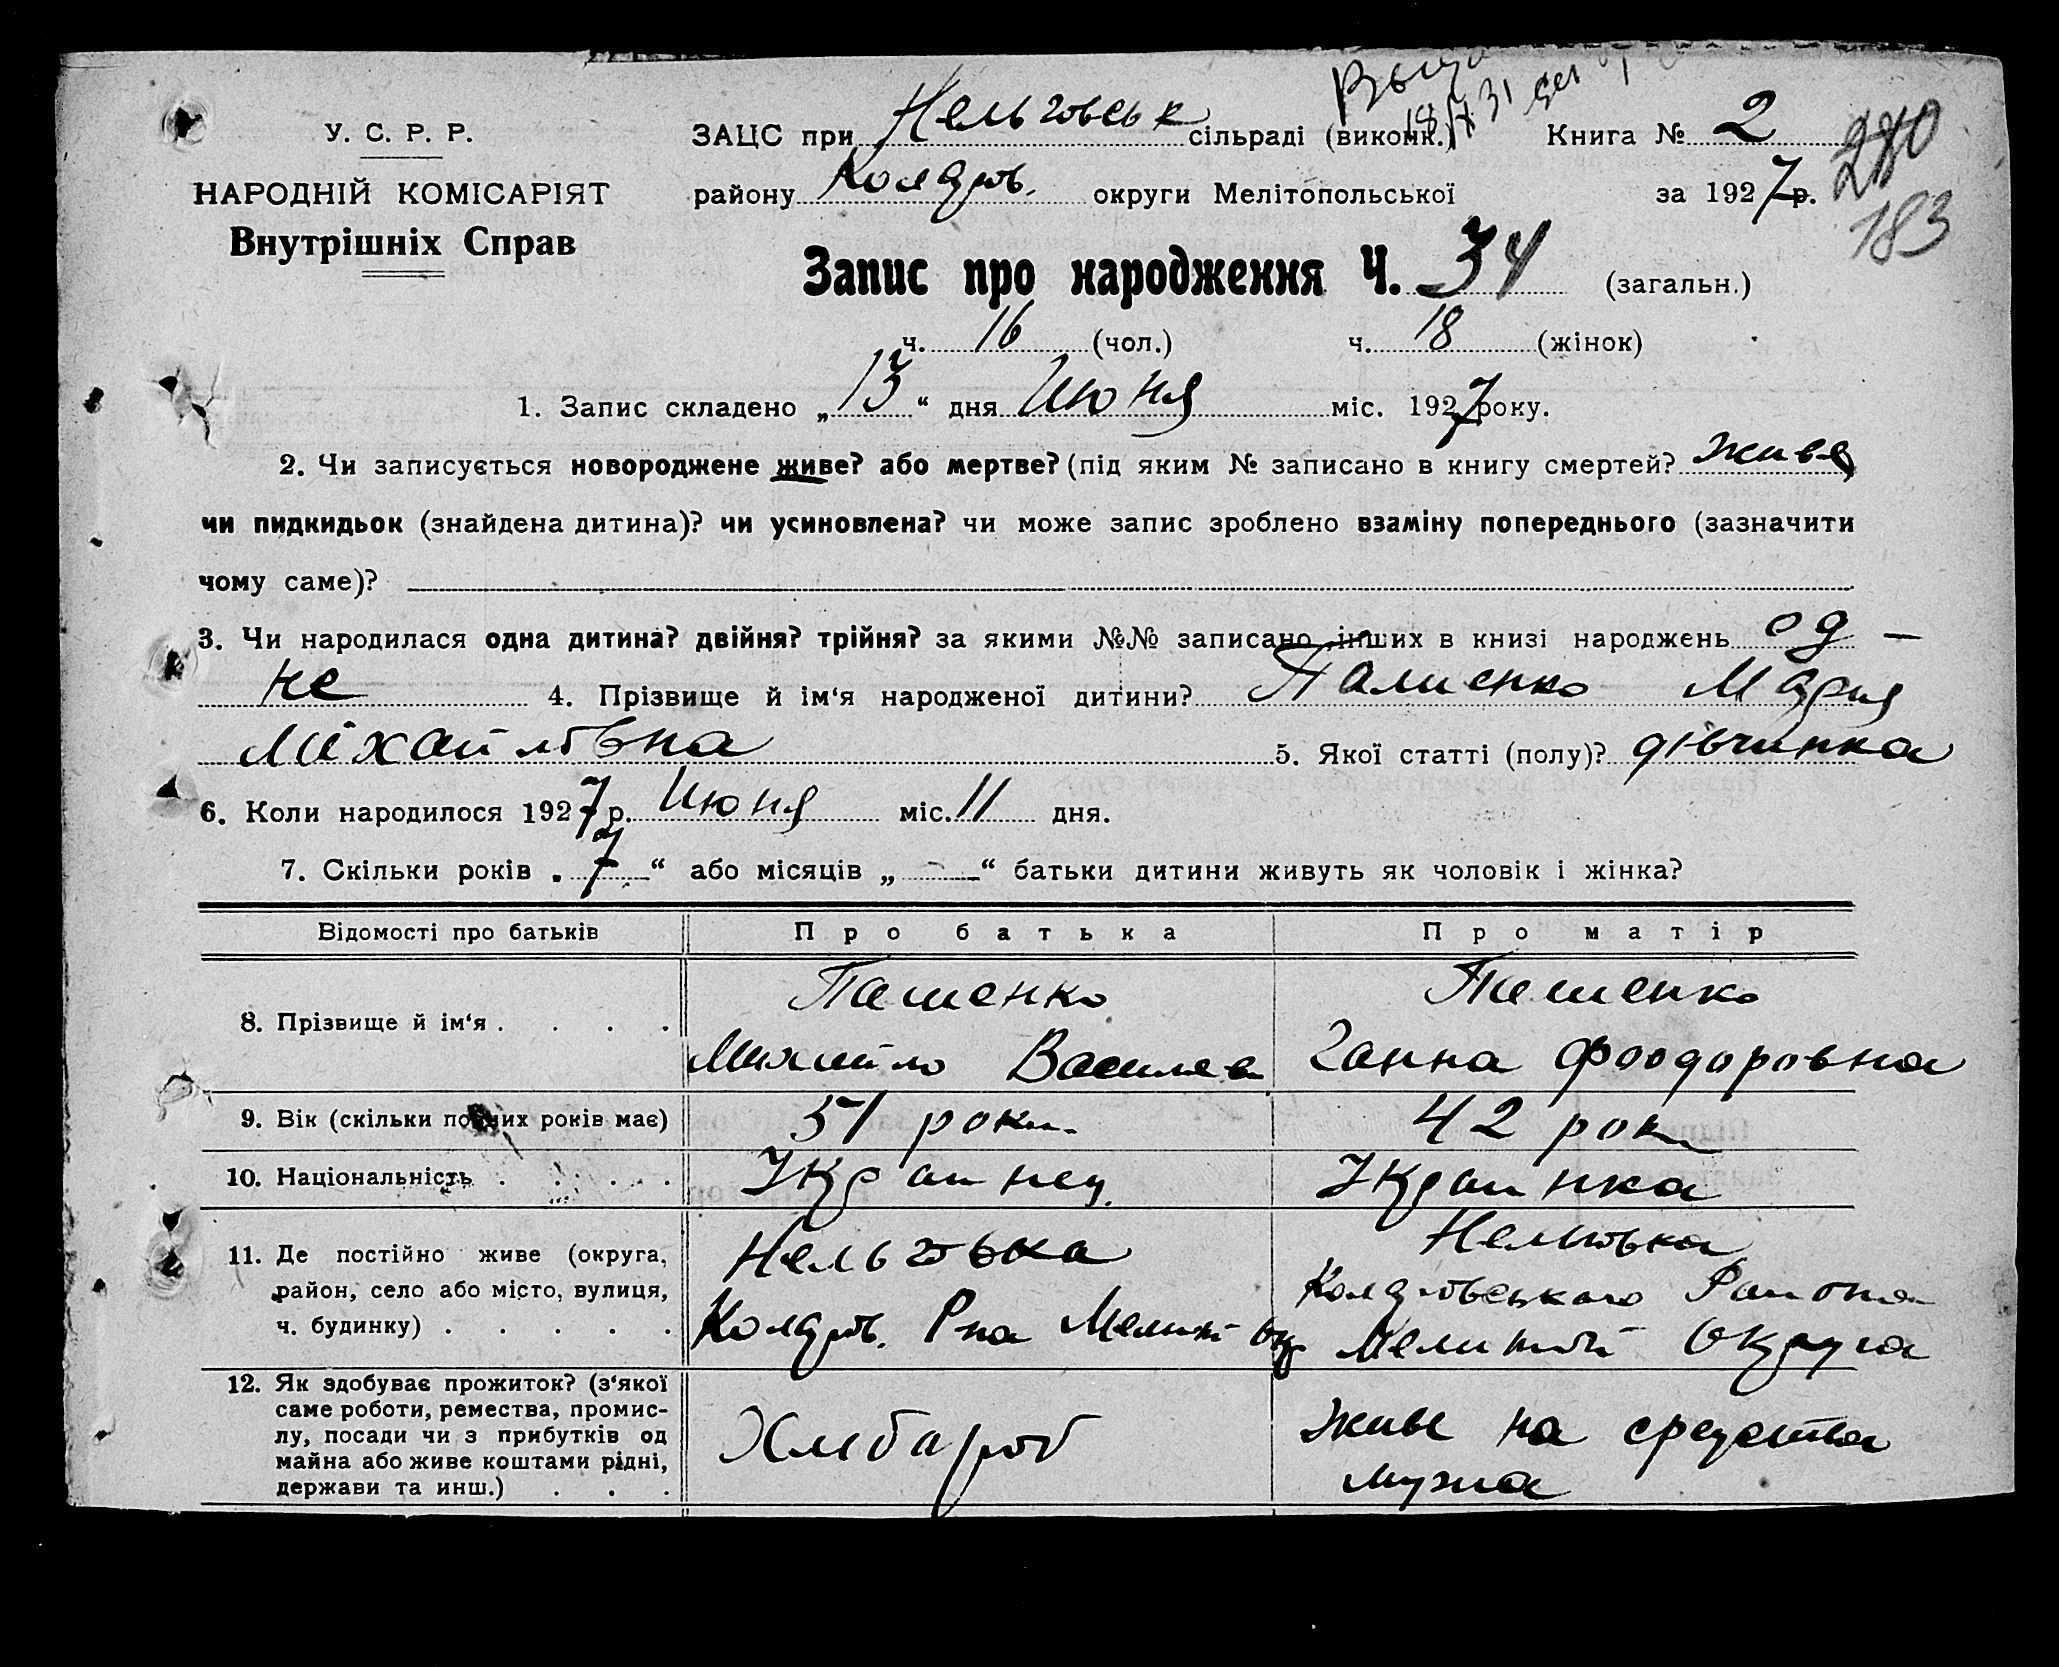 У. С. Р. Р.
НАРОДНІЙ КОМІСАРІЯТ
Внутрішніх Справ
ЗАЦС при Нельговськ сільраді (виконк.) Книга № 2
183
району Коларов. округи Мелітопольської за 1927 р.
Запис про народження Ч. 34 (загальн.)
ч. 16 (чол.) ч. 18 (жінок)
1. Запис складено „13“ дня Июня міс. 1927 року.
2. Чи записується новороджене живе? або мертве? (під яким № записано в книгу смертей? живе
чи пидкидьок (знайдена дитина)? чи усиновлена? чи може запис зроблено взаміну попереднього (зазначити
чому саме)?
3. Чи народилася одна дитина? двійня? трійня? за якими №№ записано інших в книзі народжень од-
не 4. Прізвище й ім‘я народженої дитини? Мария
Міхайловна 5. Якої статті (полу)? дівчинка
6. Коли народилося 1927 р. Июня міс. 11 дня.
7. Скільки років „7“ або місяців „—“ батьки дитини живуть як чоловік і жінка?
Відомості про батьків Про батька Про матір
8. Прізвище й ім‘я . . . .
Пашенко
Михайло Василев
Пашенко
Ганна Фоодоровна
9. Вік (скільки повних років має) 51 роки 42 рок
10. Національність . . . . Украинец. Украинка
11. Де постійно живе (округа,
район, село або місто, вулиця,
ч. будинку) . . . . .
Нельговка
Коларов. Рна Мелит Окр
Нельговка
Коларовського Района
Мелитоп Округа
12. Як здобуває прожиток? (з‘якої
саме роботи, ремества, промис-
лу, посади чи з прибутків од
майна або живе коштами рідні,
держави та инш.) . . .
Хлебароб
живе на средства
мужа